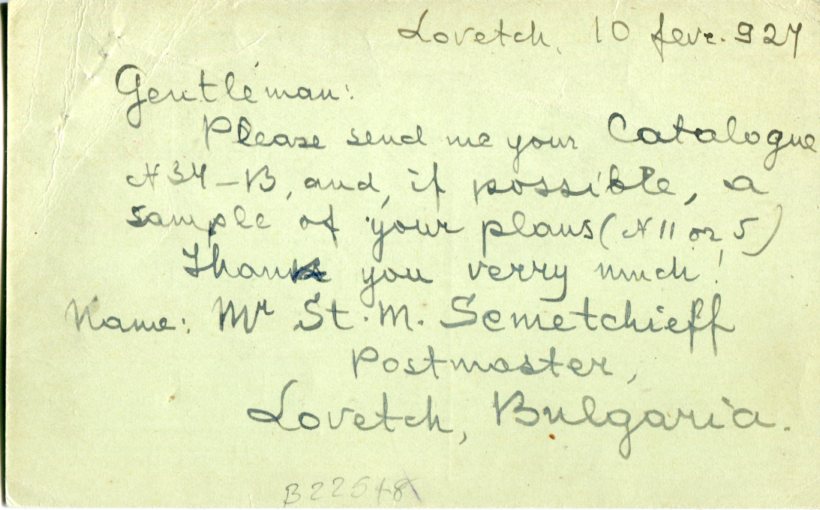 Lovetch, 10 fevr. 927
Gentleman:
Please send me your Catalogue
N 34-B, and, if possible, a
sample of your plans (N 11 or 5)
Thank you verry much!
Name: Mr St. M. Semetchieff
Postmaster,
Lovetch, Bulgaria.